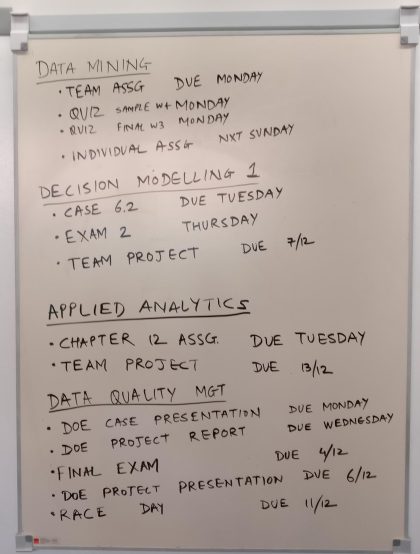 DATA MINING
• TEAM ASSG DUE MONDAY
• QUIZ SAMPLE W4 MONDAY
• QUIZ FINAL W3 MONDAY
• INDIVIDUAL ASSG NXT SUNDAY
DECISION MODELLING 1
• CASE 6.2 DUE TUESDAY
• EXAM 2 THURSDAY
• TEAM PROJECT DUE 7/12
APPLIED ANALYTICS
• CHAPTER 12 ASSG. DUE TUESDAY
• TEAM PROJECT DUE 13/12
DATA QUALITY MGT
• DOE CASE PRESENTATION DUE MONDAY
• DOE PROJECT REPORT DUE WEDNESDAY
• FINAL EXAM DUE 4/12
• DOE PROJECT PRESENTATION DUE 6/12
• RACE DAY DUE 11/12